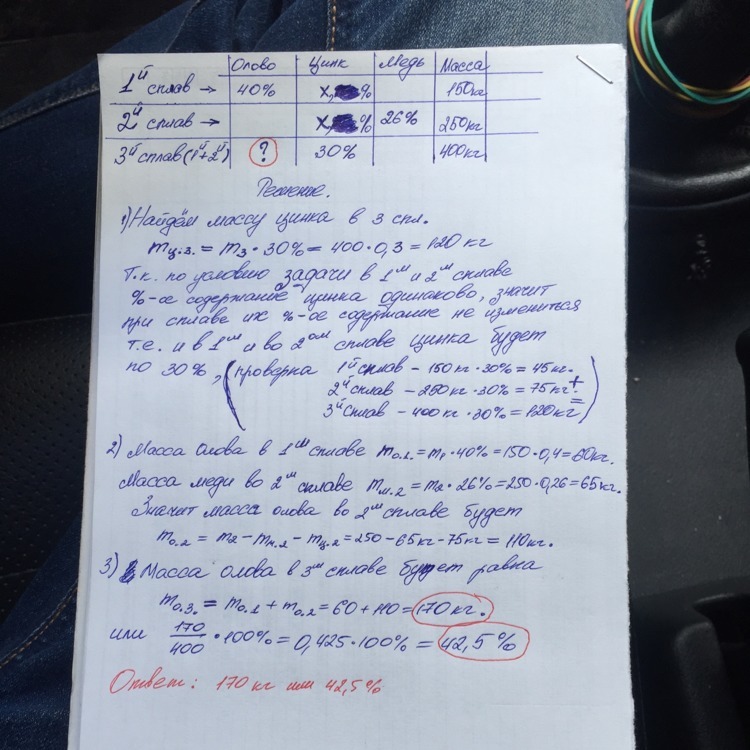 Олово Цинк Медь Масса
1й сплав → 40% x, % 150кг
2й сплав → x, % 26% 250кг
3й сплав (1й+2й) ? 30% 400кг
Решение.
1) Найдём массу цинка в 3 спл.
mц.з. = m3 · 30% = 400 · 0,3 = 120 кг
Т.к. по условию задачи в 1ом и 2ом сплаве
%-ое содержание цинка одинаково, значит
при сплаве их %-ое содержание не измениться
т.е. и в 1ом и во 2ом сплаве цинка будет
по 30%, (проверка 1й сплав – 150 кг · 30% = 45 кг.
2й сплав – 250 кг · 30% = 75 кг. +
3й сплав – 400 кг · 30% = 120 кг =)
2) Масса олова в 1ом сплаве mо.1. = m1 · 40% = 150 · 0,4 = 60 кг.
Масса меди во 2ом сплаве mм.2 = m2 · 26% = 250 · 0,26 = 65 кг.
Значит масса олова во 2ом сплаве будет
mо.2 = m2 – mм.2 – mц.2 = 250 – 65 кг – 75 кг = 110 кг.
3) Масса олова в 3ем сплаве будет равна
mо.3. = mо.1 + mо.2 = 60 + 110 = 170 кг.
или 170/400 · 100% = 0,425 · 100% = 42,5%
Ответ: 170 кг или 42,5%